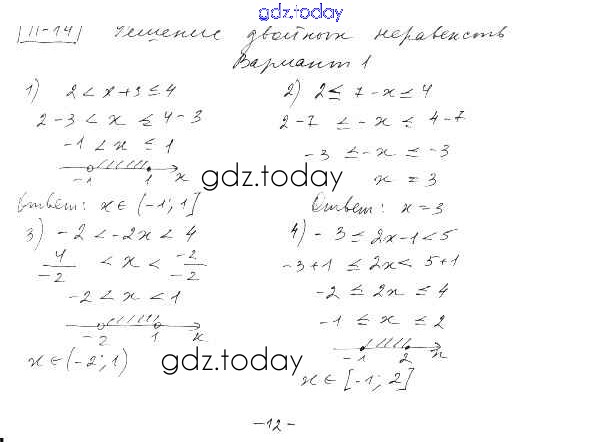 gdz.today
П-14 Решение двойных неравенств
Вариант 1
1) 2 < x + 3 ≤ 4
2 - 3 < x ≤ 4 - 3
-1 < x ≤ 1
-1 1 x
Ответ: x ∈ (-1; 1]
2) 2 ≤ 7 - x ≤ 4
2 - 7 ≤ -x ≤ 4 - 7
-3 ≤ -x ≤ -3
x = 3
Ответ: x = 3
gdz.today
3) -2 < -2x < 4
4/-2 < x < -2/-2
-2 < x < 1
-2 1 x
x ∈ (-2; 1)
4) -3 ≤ 2x - 1 < 5
-3 + 1 ≤ 2x < 5 + 1
-2 ≤ 2x ≤ 4
-1 ≤ x ≤ 2
-1 2 x
x ∈ [-1; 2]
gdz.today
-12-